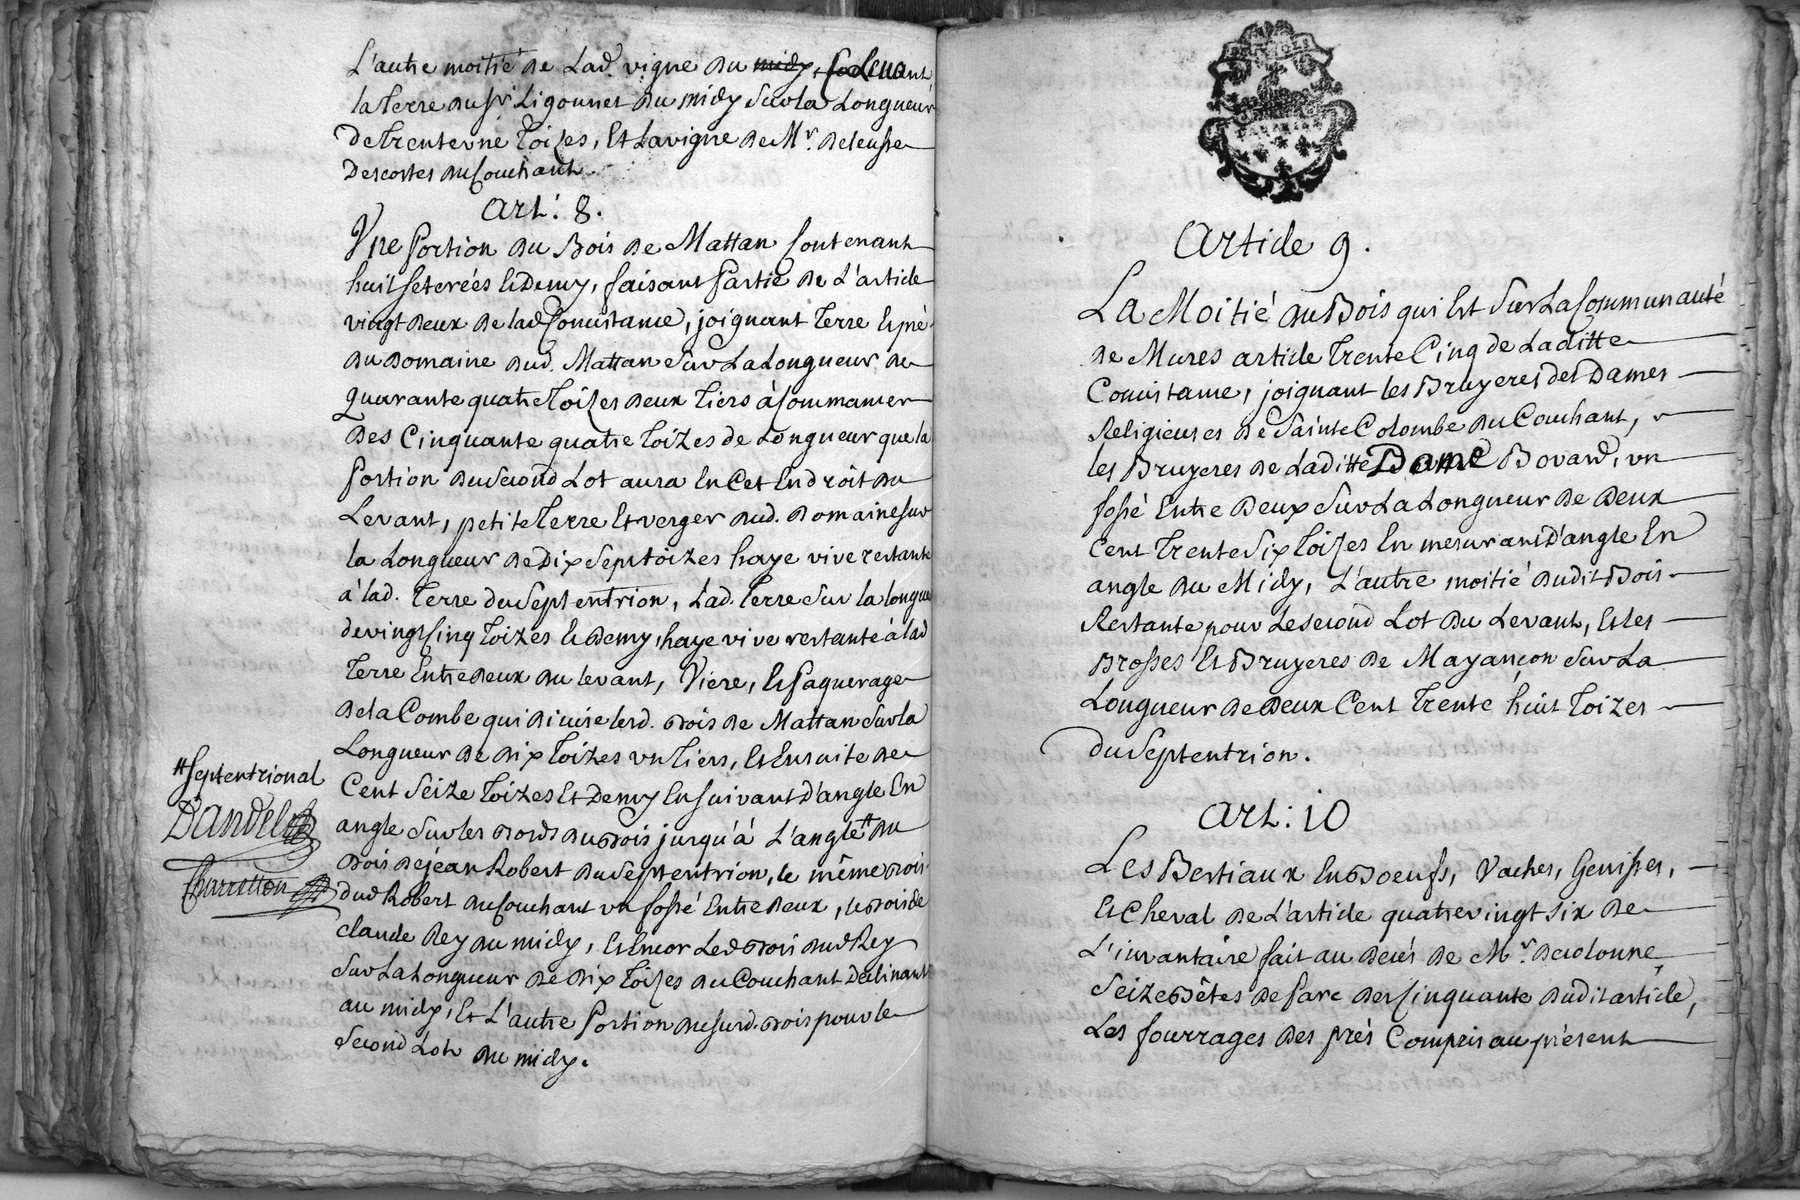 L'autre moitié de Lad. vigne du midy, levant
la Terre du Sr. Ligonnet du midy sur la Longueur
de trente une Toizes, Et La vigne de Mr. deleusse
Descostes du Couchant.
Art: 8.
Une Portion du Bois de Mattan Contenant
huit seterées Et Demy, faisant Partie de L'article
vingt deux de lad Consistance, joignant Terre Et pré
du Domaine dud. Mattan sur La Longueur de
quarante quatre Toizes deux Tiers à Commancer
Des Cinquante quatre Toizes de Longueur que la
Portion du second Lot aura En Cet Endroit du
Levant, petite Terre Et verger dud. Domaine sur
la Longueur de Dix sept toizes haye vive restante
à lad. Terre du septentrion, Lad. Terre sur la longueur
de vingt Cinq Toizes Et Demy, haye vive restante à lad
Terre Entre deux du levant, Viere, Et Paquerage
de la Combe qui divise led. Bois de Mattan sur la
Longueur de dix Toizes un Tiers, Et Ensuite de
Cent seize Toizes Et Demy En suivant d'angle En
angle sur les Bords du Bois jusqu'à L'angle # du
Bois de jean Robert du septentrion, le même Bois
dud Robert du Couchant un fossé Entre deux, le Bois de
claude Rey du midy, Et Encor Led Bois dud Rey
sur La Longueur de dix Toizes du Couchant Declinant
au midy, Et L'autre Portion du surd. Bois pour le
second Lot du midy.
# septentrional
Dandel
Charretton
Article 9.
La Moitié du Bois qui Est sur La Communauté
de Mures article Trente Cinq de Laditte
Consistance, joignant les Bruyeres des Dames
Religieuses de Sainte Colombe du Couchant,
les Bruyeres de Laditte Dame Bovard, un
fossé Entre Deux sur La Longueur de Deux
Cent Trente six Toizes En mesurant D'angle En
angle du Midy, L'autre moitié dudit Bois
Restante pour Le second Lot du Levant, Et les
Brosses Et Bruyeres de Mayançon sur La
Longueur de Deux Cent Trente huit Toizes
du septentrion.
Art: 10
Les Bestiaux En Boeufs, Vaches, Genisses,
Et Cheval de L'article quatre vingt six de
L'inventaire fait au decés de Mr. decolonne,
seize Bêtes de Parc des Cinquante dudit article,
Les fourrages des prés Compris au présent